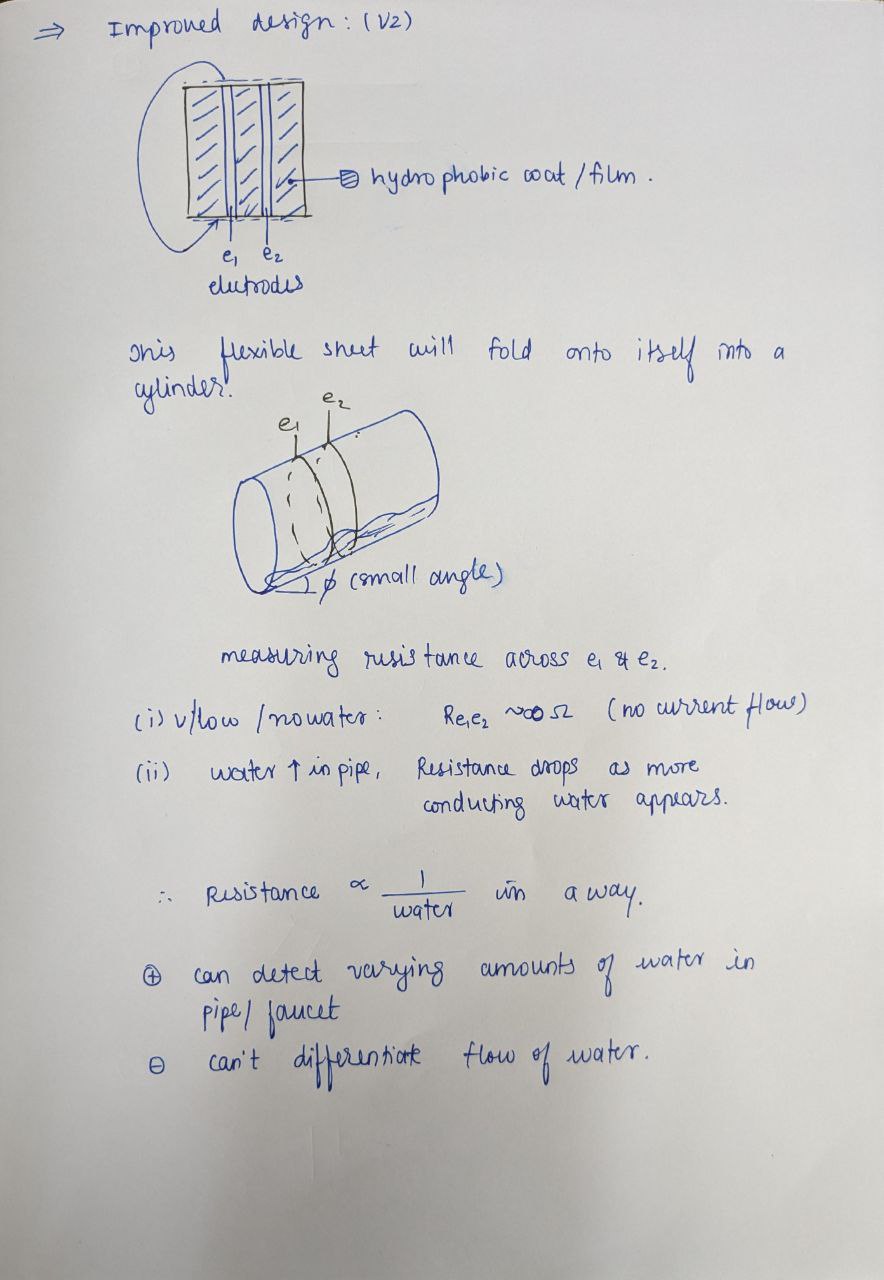 ⇒ Improved design: (V2)
hydrophobic coat / film.
e₁ e₂
electrodes
This flexible sheet will fold onto itself into a
cylinder.
e₁ e₂
ϕ (small angle)
measuring resistance across e₁ & e₂.
(i) v/low / no water: Re₁e₂ ~∞ Ω (no current flow)
(ii) water ↑ in pipe, Resistance drops as more
conducting water appears.
∴ Resistance ∝ 1/water in a way.
⊕ can detect varying amounts of water in
pipe/ faucet
⊖ can't differentiate flow of water.